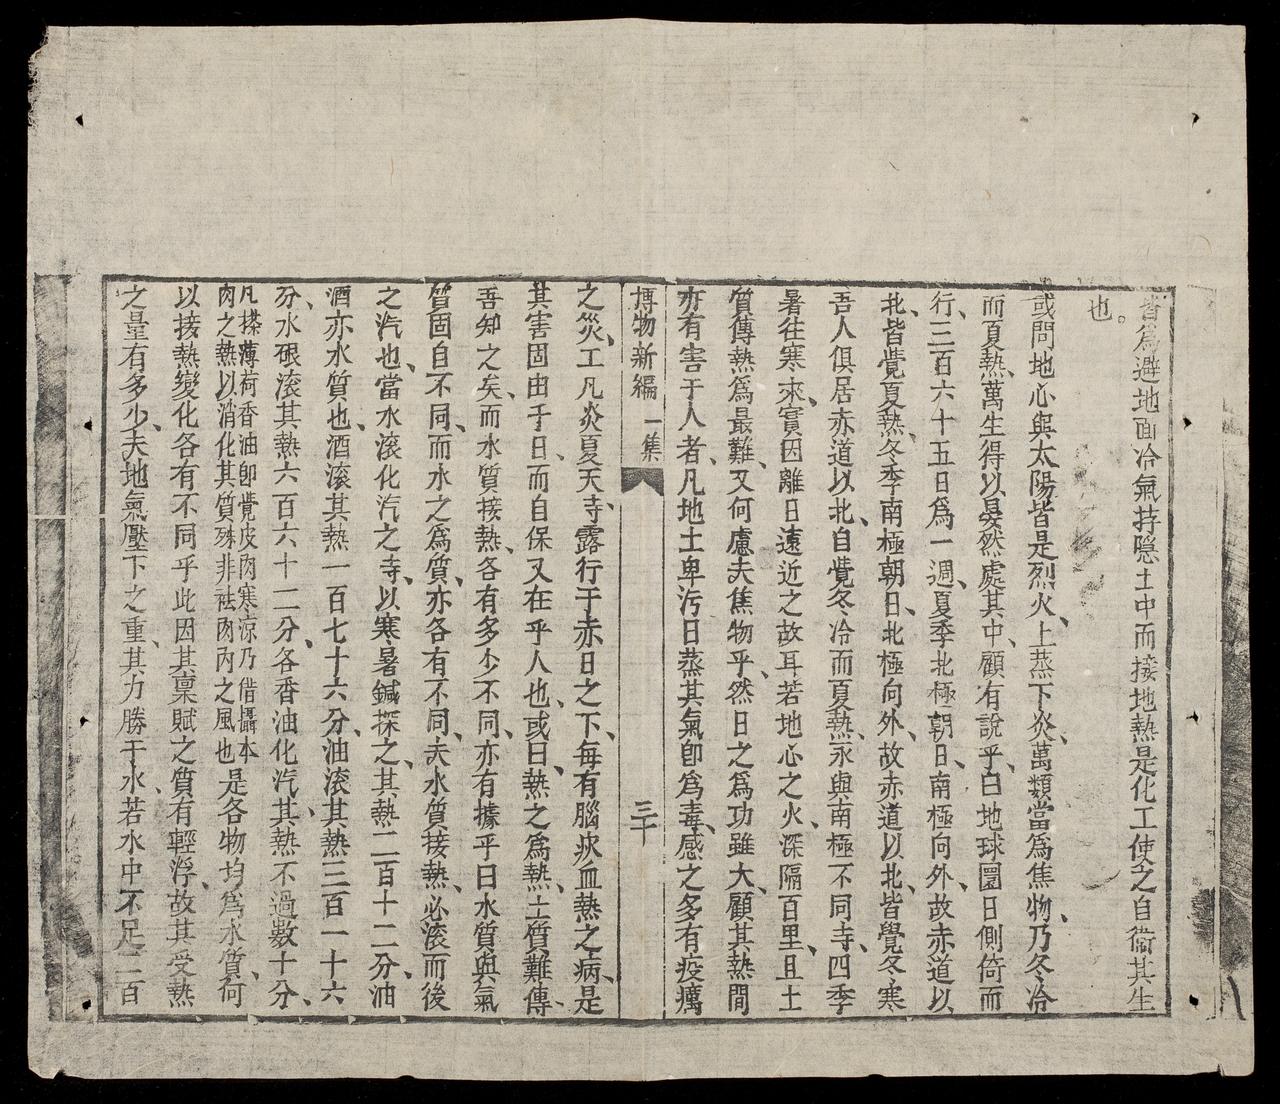 皆爲避地面冷氣拧隱土中而接地熱是化工使之自衞其生
也。
或問地心與太陽皆是烈火、上蒸下炎、萬類當爲焦物、乃冬冷
而夏熱、萬生得以晏然處其中、顧有說乎、白地球圜日側倚而
行、三百六十五日爲一週、夏季北極朝日、南極向外、故赤道以
北、皆覺夏熱、冬季南極朝日、北極向外、故赤道以北、皆覺冬寒
吾人俱居赤道以北、自覺冬冷而夏熱、永與南極不同寺、四季
暑往寒來、實因離日遠近之故耳若地心之火、深隔百里、且土
質傳熱爲最難、又何慮夫焦物乎、然日之爲功雖大、顧其熱間
亦有害于人者、凡地土卑污日蒸其氣卽爲毒、感之多有疫癘
博物新編 一集 三十
之災、工凡炎夏天寺、露行于赤日之下、每有腦炊血熱之病、是
其害固由于日、而自保又在乎人也、或曰熱之爲熱、土質難傳、
吾知之矣、而水質接熱、各有多少不同、亦有據乎曰水質與氣
質固自不同、而水之爲質、亦各有不同、夫水質接熱、必滚而後
之汽也、當水滚化汽之寺、以寒暑鍼探之、其熱二百十二分、油
酒亦水質也、酒滚其熱一百七十六分、油滚其熱三百一十六
分、水硍滚其熱六百六十二分、各香油化汽其熱不過數十分、
凡搽薄荷香油卽覺皮肉寒凉乃借攝本
肉之熱以消化其質殊非祛肉內之風也
是各物均爲水質、何
以接熱變化各有不同乎此因其稟賦之質有輕浮、故其受熱
之量有多少、夫地氣壓下之重、其力勝于水、若水中不足二百